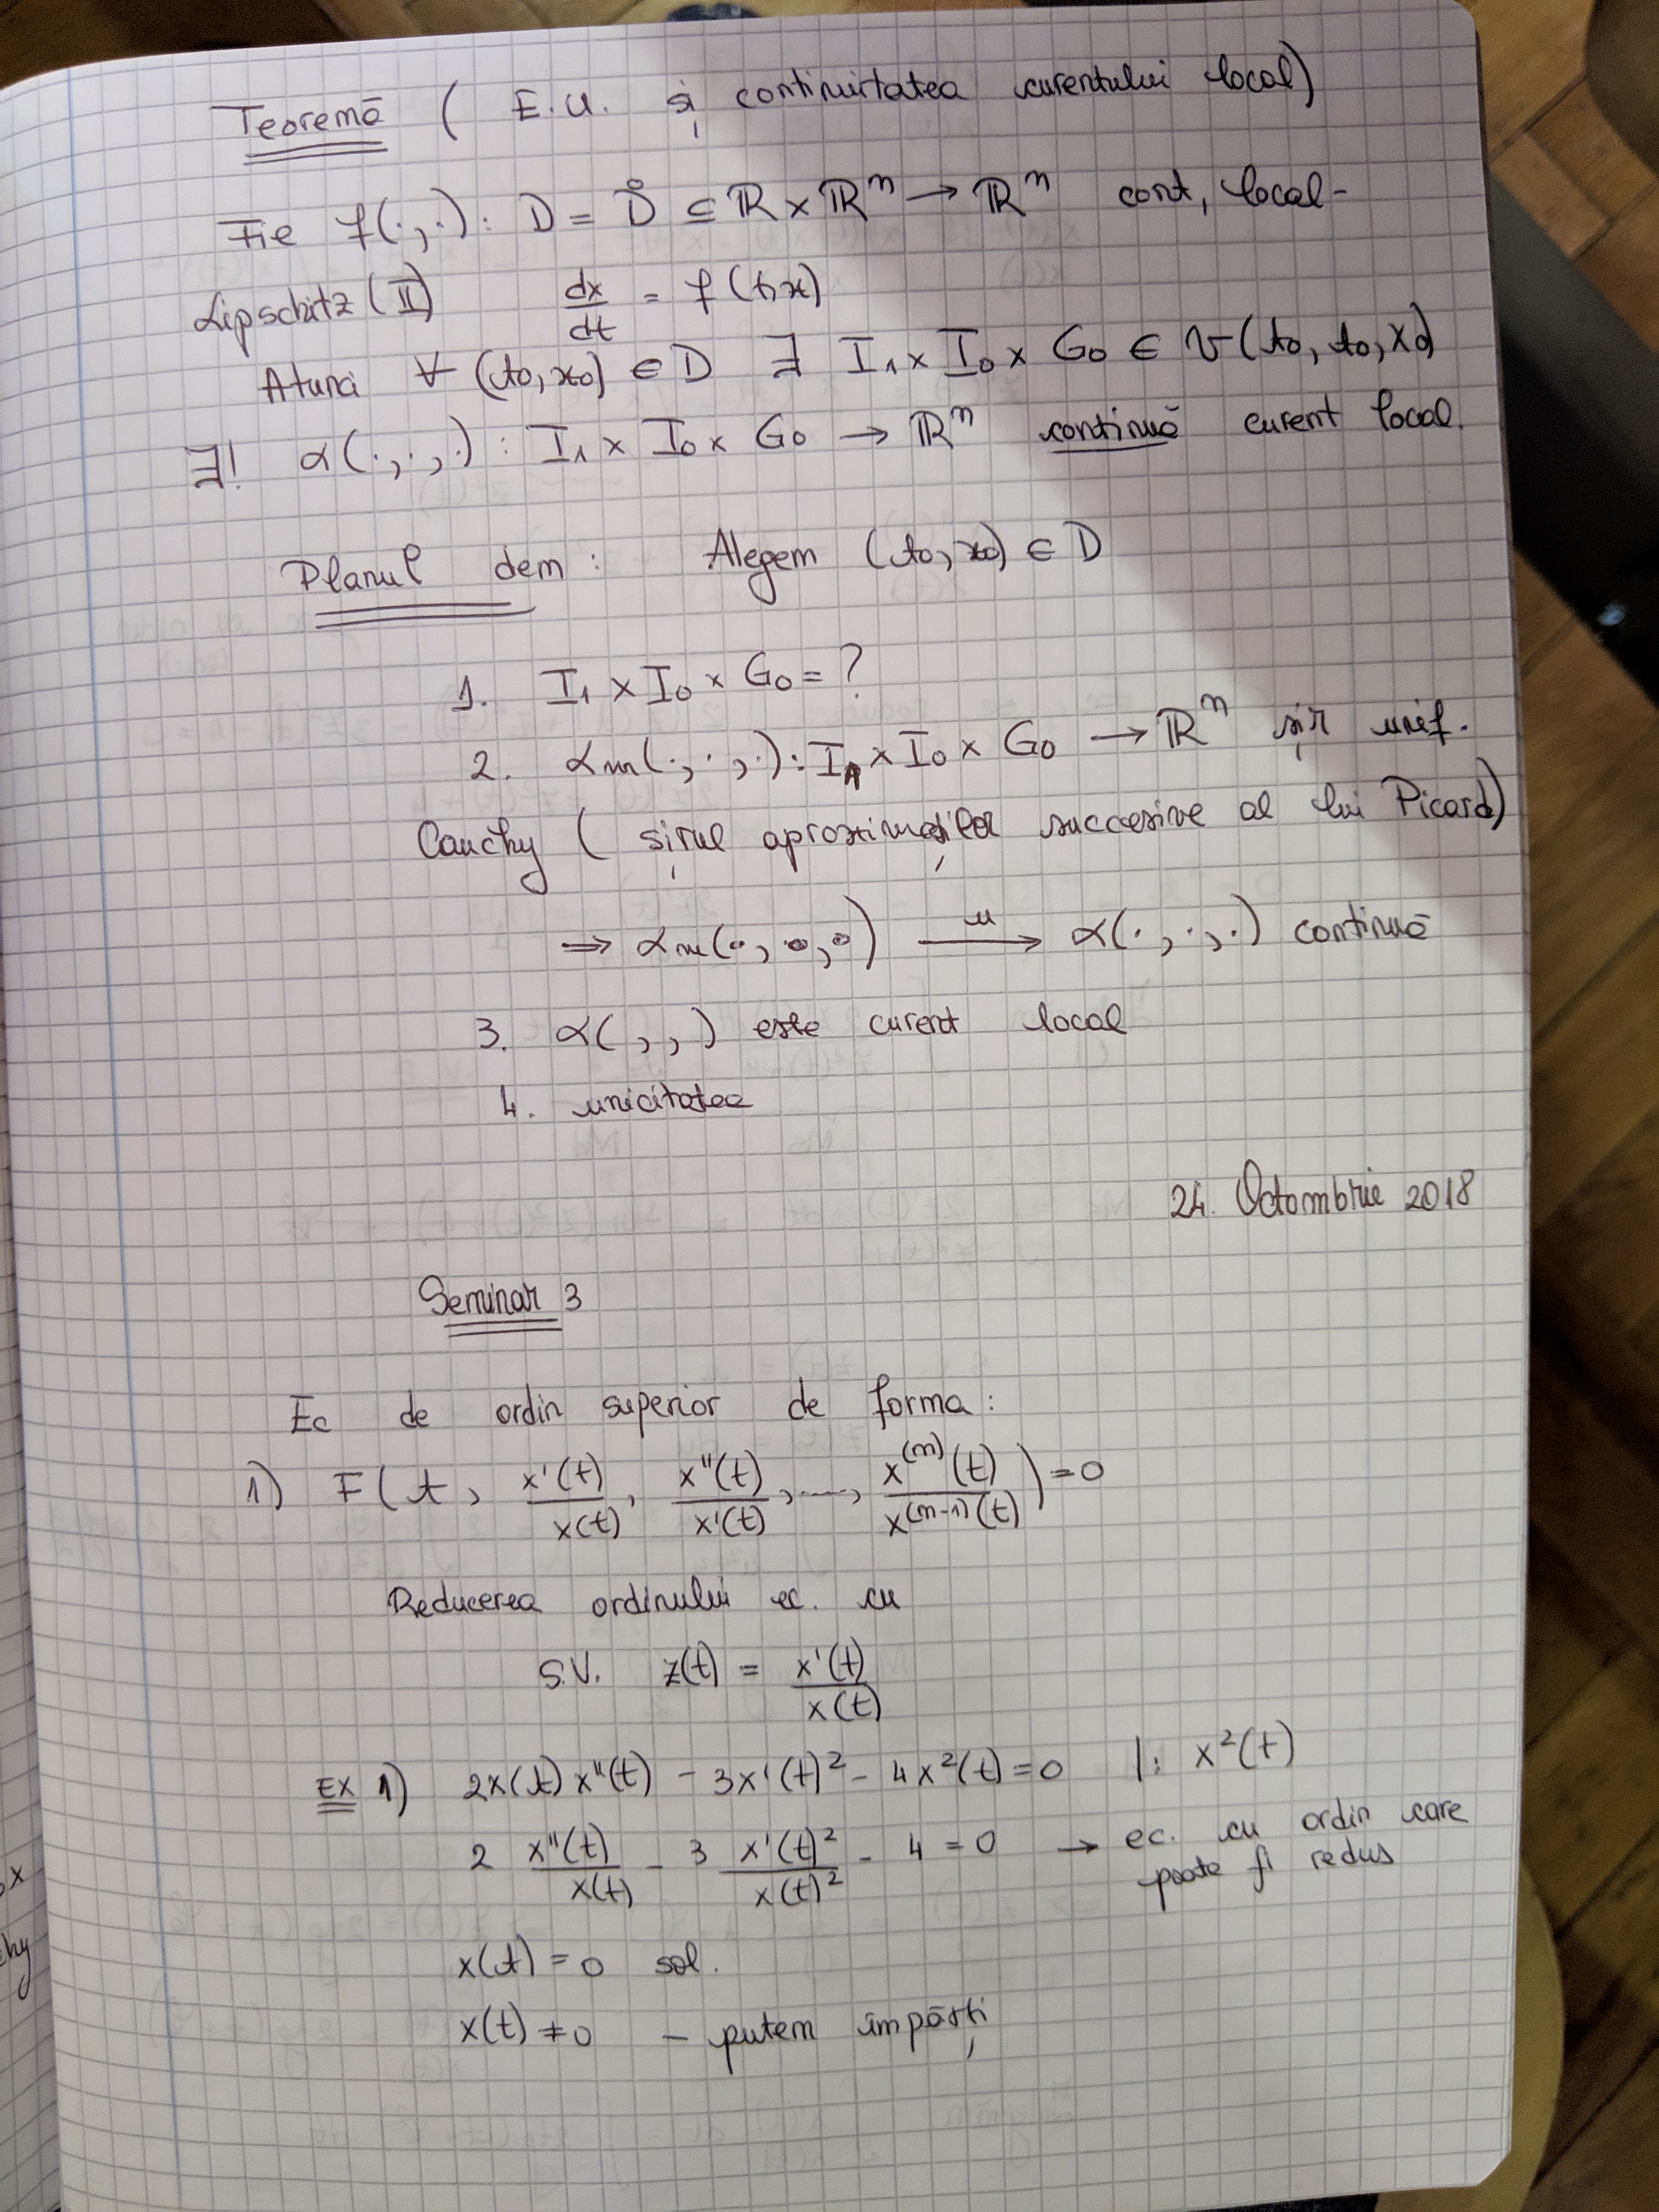 Teoremă ( E.U. și continuitatea curentului local)
Fie f(·,·): D = D̊ ⊆ ℝ × ℝⁿ → ℝⁿ cont, local-
Lipschitz (II) dx/dt = f(t,x)
Atunci ∀ (t₀, x₀) ∈ D ∃ I₁ × I₀ × G₀ ∈ V(t₀, t₀, x₀)
∃! α(·,·,·): I₁ × I₀ × G₀ → ℝⁿ continuă curent local.
Planul dem: Alegem (t₀, x₀) ∈ D
1. I₁ × I₀ × G₀ = ?
2. αm(·,·,·): I₁ × I₀ × G₀ → ℝⁿ șir unif.
Cauchy ( șirul aproximațiilor succesive al lui Picard)
⇒ αm(·,·,·) —u→ α(·,·,·) continuă
3. α( , , ) este curent local
4. unicitatea
24. Octombrie 2018
Seminar 3
Ec de ordin superior de forma:
1) F(t, x'(t)/x(t), x''(t)/x'(t), ..., x^(n)(t)/x^(n-1)(t)) = 0
Reducerea ordinului ec. cu
S.V. z(t) = x'(t)/x(t)
EX 1) 2x(t) x''(t) - 3x'(t)² - 4x²(t) = 0 |: x²(t)
2 x''(t)/x(t) - 3 x'(t)²/x(t)² - 4 = 0 → ec. cu ordin care
poate fi redus
x(t) = 0 sol.
x(t) ≠ 0 – putem împărți